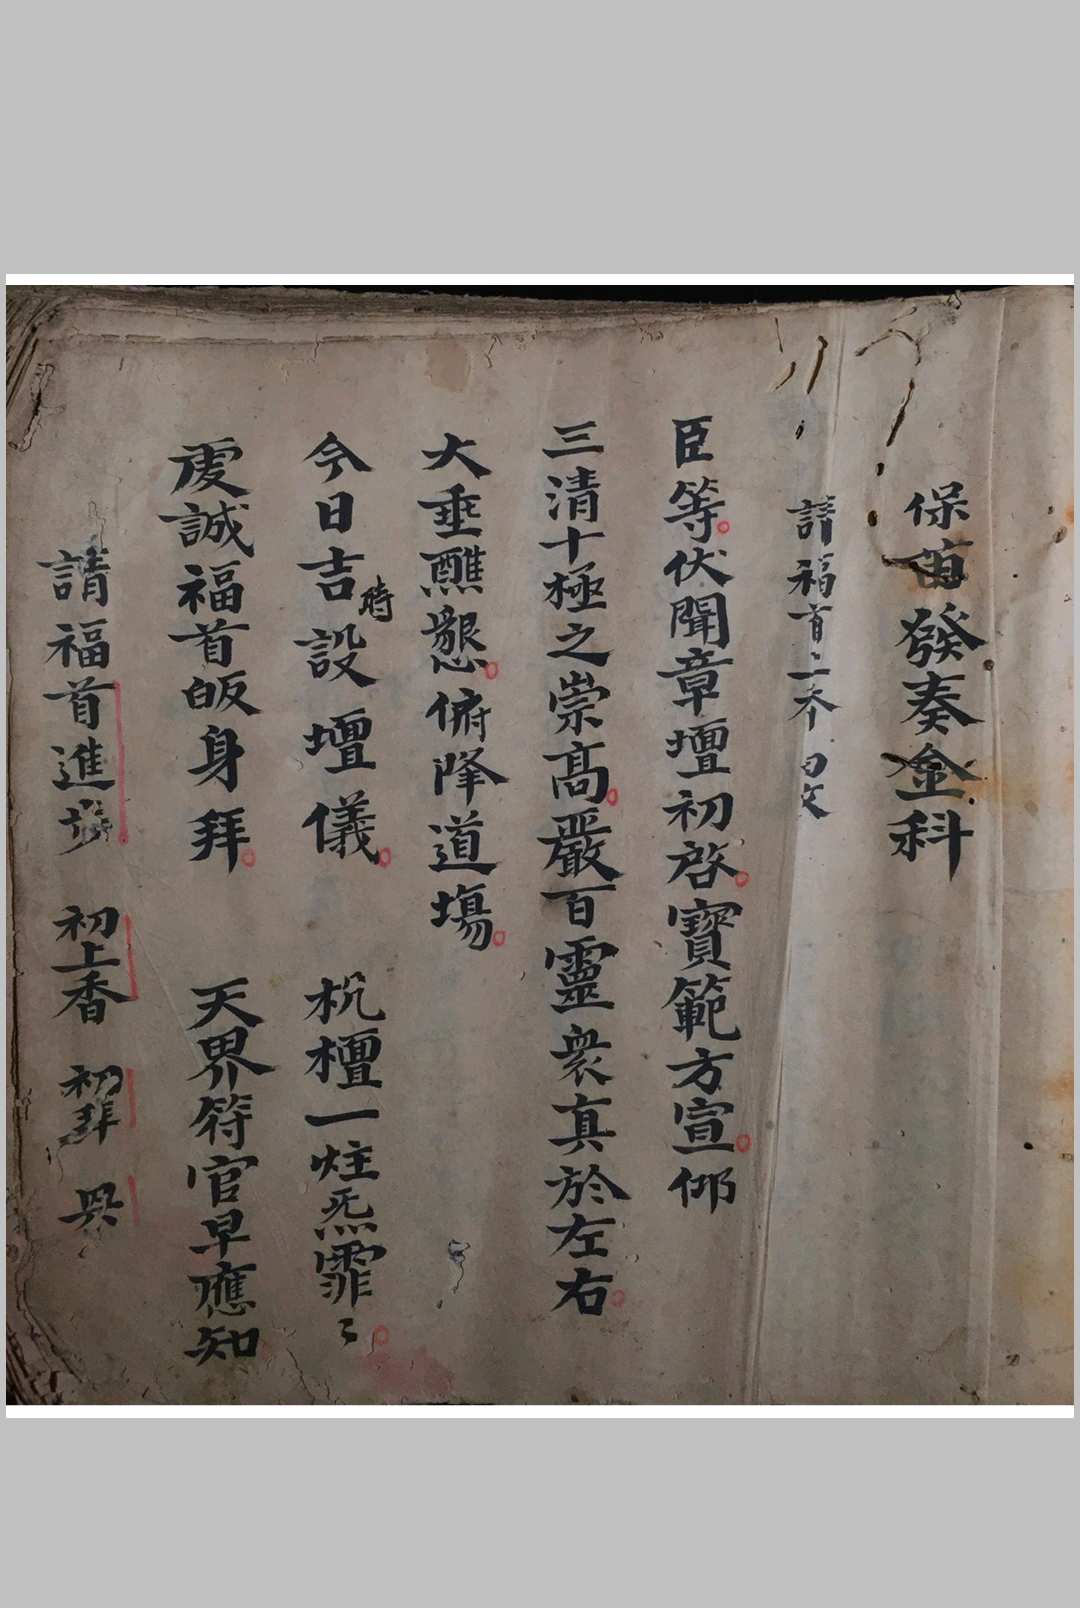 保苗發奏金科
請福首上香 白文
臣等。伏聞章壇初啓。寳範方宣。仰
三清十極之崇高。嚴百靈衆真於左右。
大垂醮懇。俯降道塲。
今日吉時設壇儀。 杭檀一炷炁霏〻。
虔誠福首皈身拜。 天界符官早應知
請福首進 初上香 初拜 具